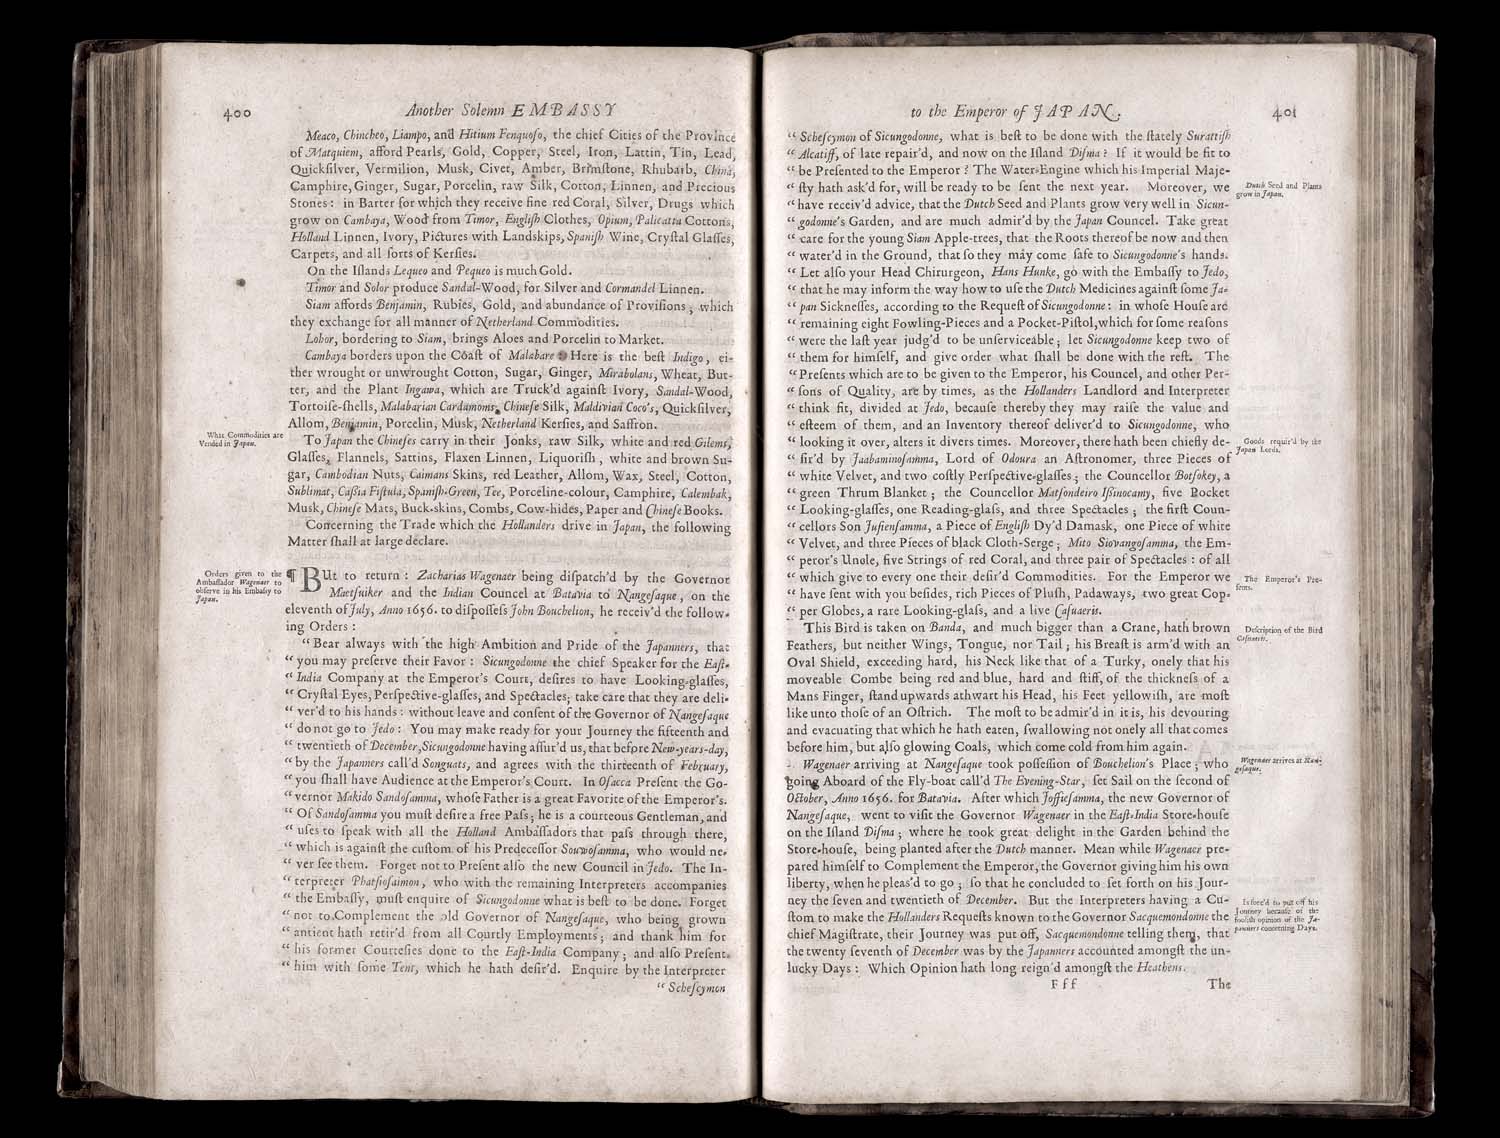 400
Another Solemn EMBASSY
Meaco, Chincheo, Liampo, and Hitium Fenquoſo, the chief Cities of the Province
of Matquiem, afford Pearls, Gold, Copper, Steel, Iron, Lattin, Tin, Lead,
Quickſilver, Vermilion, Musk, Civet, Amber, Brimſtone, Rhubarb, China,
Camphire, Ginger, Sugar, Porcelin, raw Silk, Cotton, Linnen, and Precious
Stones: in Barter for which they receive fine red Coral, Silver, Drugs which
grow on Cambaya, Wood from Timor, Engliſh Clothes, Opium, Palicatta Cottons,
Holland Linnen, Ivory, Pictures with Landskips, Spaniſh Wine, Cryſtal Glaſſes,
Carpets, and all ſorts of Kerſies.
On the Iſlands Lequeo and Pequeo is much Gold.
Timor and Solor produce Sandal-Wood, for Silver and Cormandel Linnen.
Siam affords Benjamin, Rubies, Gold, and abundance of Proviſions, which
they exchange for all manner of Netherland Commodities.
Lohor, bordering to Siam, brings Aloes and Porcelin to Market.
Cambaya borders upon the Coaſt of Malabare: Here is the beſt Indigo, ei-
ther wrought or unwrought Cotton, Sugar, Ginger, Mirabolans, Wheat, But-
ter, and the Plant Ingawa, which are Truck'd againſt Ivory, Sandal-Wood,
Tortoiſe-ſhells, Malabarian Cardamoms, Chineſe Silk, Maldivian Coco's, Quickſilver,
Allom, Benjamin, Porcelin, Musk, Netherland Kerſies, and Saffron.
What Commodities are
Vended in Japan.
To Japan the Chineſes carry in their Jonks, raw Silk, white and red Gilems,
Glaſſes, Flannels, Sattins, Flaxen Linnen, Liquoriſh, white and brown Su-
gar, Cambodian Nuts, Caimans Skins, red Leather, Allom, Wax, Steel, Cotton,
Sublimat, Caſſia Fiſtula, Spaniſh-Green, Tee, Porceline-colour, Camphire, Calembak,
Musk, Chineſe Mats, Buck-skins, Combs, Cow-hides, Paper and Chineſe Books.
Concerning the Trade which the Hollanders drive in Japan, the following
Matter ſhall at large declare.
Orders given to the
Ambaſſador Wagenaer to
obſerve in his Embaſſy to
Japan.
¶ BUt to return: Zacharias Wagenaer being diſpatch'd by the Governor
Maetſuiker and the Indian Councel at Batavia to Nangeſaque, on the
eleventh of July, Anno 1656. to diſpoſſeſs John Bouchelion, he receiv'd the follow-
ing Orders:
“ Bear always with the high Ambition and Pride of the Japanners, that
“ you may preſerve their Favor: Sicungodonne the chief Speaker for the Eaſt-
“ India Company at the Emperor's Court, deſires to have Looking-glaſſes,
“ Cryſtal Eyes, Perſpective-glaſſes, and Spectacles; take care that they are deli-
“ ver'd to his hands: without leave and conſent of the Governor of Nangeſaque
“ do not go to Jedo: You may make ready for your Journey the fifteenth and
“ twentieth of December, Sicungodonne having aſſur'd us, that before New-years-day,
“ by the Japanners call'd Songuats, and agrees with the thirteenth of February,
“ you ſhall have Audience at the Emperor's Court. In Oſacca Preſent the Go-
“ vernor Makido Sandoſamma, whoſe Father is a great Favorite of the Emperor's.
“ Of Sandoſamma you muſt deſire a free Paſs; he is a courteous Gentleman, and
“ uſes to ſpeak with all the Holland Ambaſſadors that paſs through there,
“ which is againſt the cuſtom of his Predeceſſor Souwoſamma, who would ne-
“ ver ſee them. Forget not to Preſent alſo the new Council in Jedo. The In-
“ terpreter Phatſioſaimon, who with the remaining Interpreters accompanies
“ the Embaſſy, muſt enquire of Sicungodonne what is beſt to be done. Forget
“ not to Complement the old Governor of Nangeſaque, who being grown
“ antient hath retir'd from all Courtly Employments; and thank him for
“ his former Courteſies done to the Eaſt-India Company; and alſo Preſent
“ him with ſome Tent, which he hath deſir'd. Enquire by the Interpreter
“ Scheſcymon
to the Emperor of JAPAN.
401
“ Scheſcymon of Sicungodonne, what is beſt to be done with the ſtately Surattiſh
“ Alcatiff, of late repair'd, and now on the Iſland Diſma? If it would be fit to
“ be Preſented to the Emperor? The Water-Engine which his Imperial Maje-
“ ſty hath ask'd for, will be ready to be ſent the next year. Moreover, we
Dutch Seed and Plants
grow in Japan.
“ have receiv'd advice, that the Dutch Seed and Plants grow very well in Sicun-
“ godonne's Garden, and are much admir'd by the Japan Councel. Take great
“ care for the young Siam Apple-trees, that the Roots thereof be now and then
“ water'd in the Ground, that ſo they may come ſafe to Sicungodonne's hands.
“ Let alſo your Head Chirurgeon, Hans Hunke, go with the Embaſſy to Jedo,
“ that he may inform the way how to uſe the Dutch Medicines againſt ſome Ja-
“ pan Sickneſſes, according to the Requeſt of Sicungodonne: in whoſe Houſe are
“ remaining eight Fowling-Pieces and a Pocket-Piſtol, which for ſome reaſons
“ were the laſt year judg'd to be unſerviceable; let Sicungodonne keep two of
“ them for himſelf, and give order what ſhall be done with the reſt. The
“ Preſents which are to be given to the Emperor, his Councel, and other Per-
“ ſons of Quality, are by times, as the Hollanders Landlord and Interpreter
“ think fit, divided at Jedo, becauſe thereby they may raiſe the value and
“ eſteem of them, and an Inventory thereof deliver'd to Sicungodonne, who
“ looking it over, alters it divers times. Moreover, there hath been chiefly de-
Goods requir'd by the
Japan Lords.
“ ſir'd by Jaabaminoſamma, Lord of Odoura an Aſtronomer, three Pieces of
“ white Velvet, and two coſtly Perſpective-glaſſes; the Councellor Botſokey, a
“ green Thrum Blanket; the Councellor Matſondeiro Iſſinocamy, five Pocket
“ Looking-glaſſes, one Reading-glaſs, and three Spectacles; the firſt Coun-
“ cellors Son Juſienſamma, a Piece of Engliſh Dy'd Damask, one Piece of white
“ Velvet, and three Pieces of black Cloth-Serge; Mito Siovangoſamma, the Em-
“ peror's Unole, five Strings of red Coral, and three pair of Spectacles: of all
“ which give to every one their deſir'd Commodities. For the Emperor we
The Emperor's Pre-
ſents.
“ have ſent with you beſides, rich Pieces of Pluſh, Padaways, two great Cop-
“ per Globes, a rare Looking-glaſs, and a live Caſuaeris.
This Bird is taken on Banda, and much bigger than a Crane, hath brown
Deſcription of the Bird
Caſuaeris.
Feathers, but neither Wings, Tongue, nor Tail; his Breaſt is arm'd with an
Oval Shield, exceeding hard, his Neck like that of a Turky, onely that his
moveable Combe being red and blue, hard and ſtiff, of the thickneſs of a
Mans Finger, ſtand upwards athwart his Head, his Feet yellowiſh, are moſt
like unto thoſe of an Oſtrich. The moſt to be admir'd in it is, his devouring
and evacuating that which he hath eaten, ſwallowing not onely all that comes
before him, but alſo glowing Coals, which come cold from him again.
Wagenaer arriving at Nangeſaque took poſſeſſion of Bouchelion's Place; who
Wagenaer arrives at Nan-
geſaque.
going Aboard of the Fly-boat call'd The Evening-Star, ſet Sail on the ſecond of
October, Anno 1656. for Batavia. After which Joſſieſamma, the new Governor of
Nangeſaque, went to viſit the Governor Wagenaer in the Eaſt-India Store-houſe
on the Iſland Diſma; where he took great delight in the Garden behind the
Store-houſe, being planted after the Dutch manner. Mean while Wagenaer pre-
pared himſelf to Complement the Emperor, the Governor giving him his own
liberty, when he pleas'd to go; ſo that he concluded to ſet forth on his Jour-
ney the ſeven and twentieth of December. But the Interpreters having a Cu-
Is forc'd to put off his
Journey becauſe of the
fooliſh opinion of the Ja-
panners concerning Days.
ſtom to make the Hollanders Requeſts known to the Governor Sacquemondonne the
chief Magiſtrate, their Journey was put off, Sacquemondonne telling them, that
the twenty ſeventh of December was by the Japanners accounted amongſt the un-
lucky Days: Which Opinion hath long reign'd amongſt the Heathens.
Fff
The